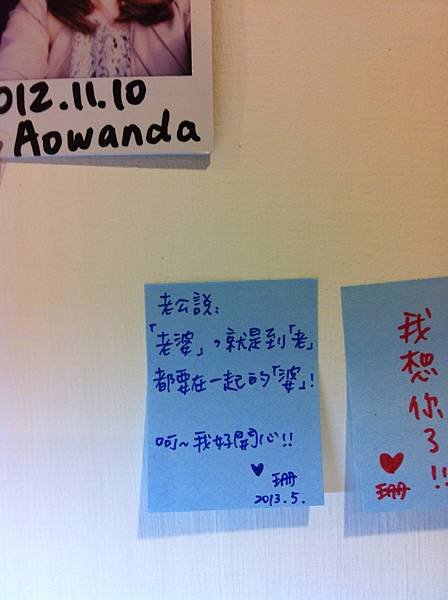 012.11.10
Aowanda
老公說：
「老婆」，就是到「老」
都要在一起的「婆」!
呵~我好開心!!
♥ 珊
2013.5.
我想你了!!
♥
珊